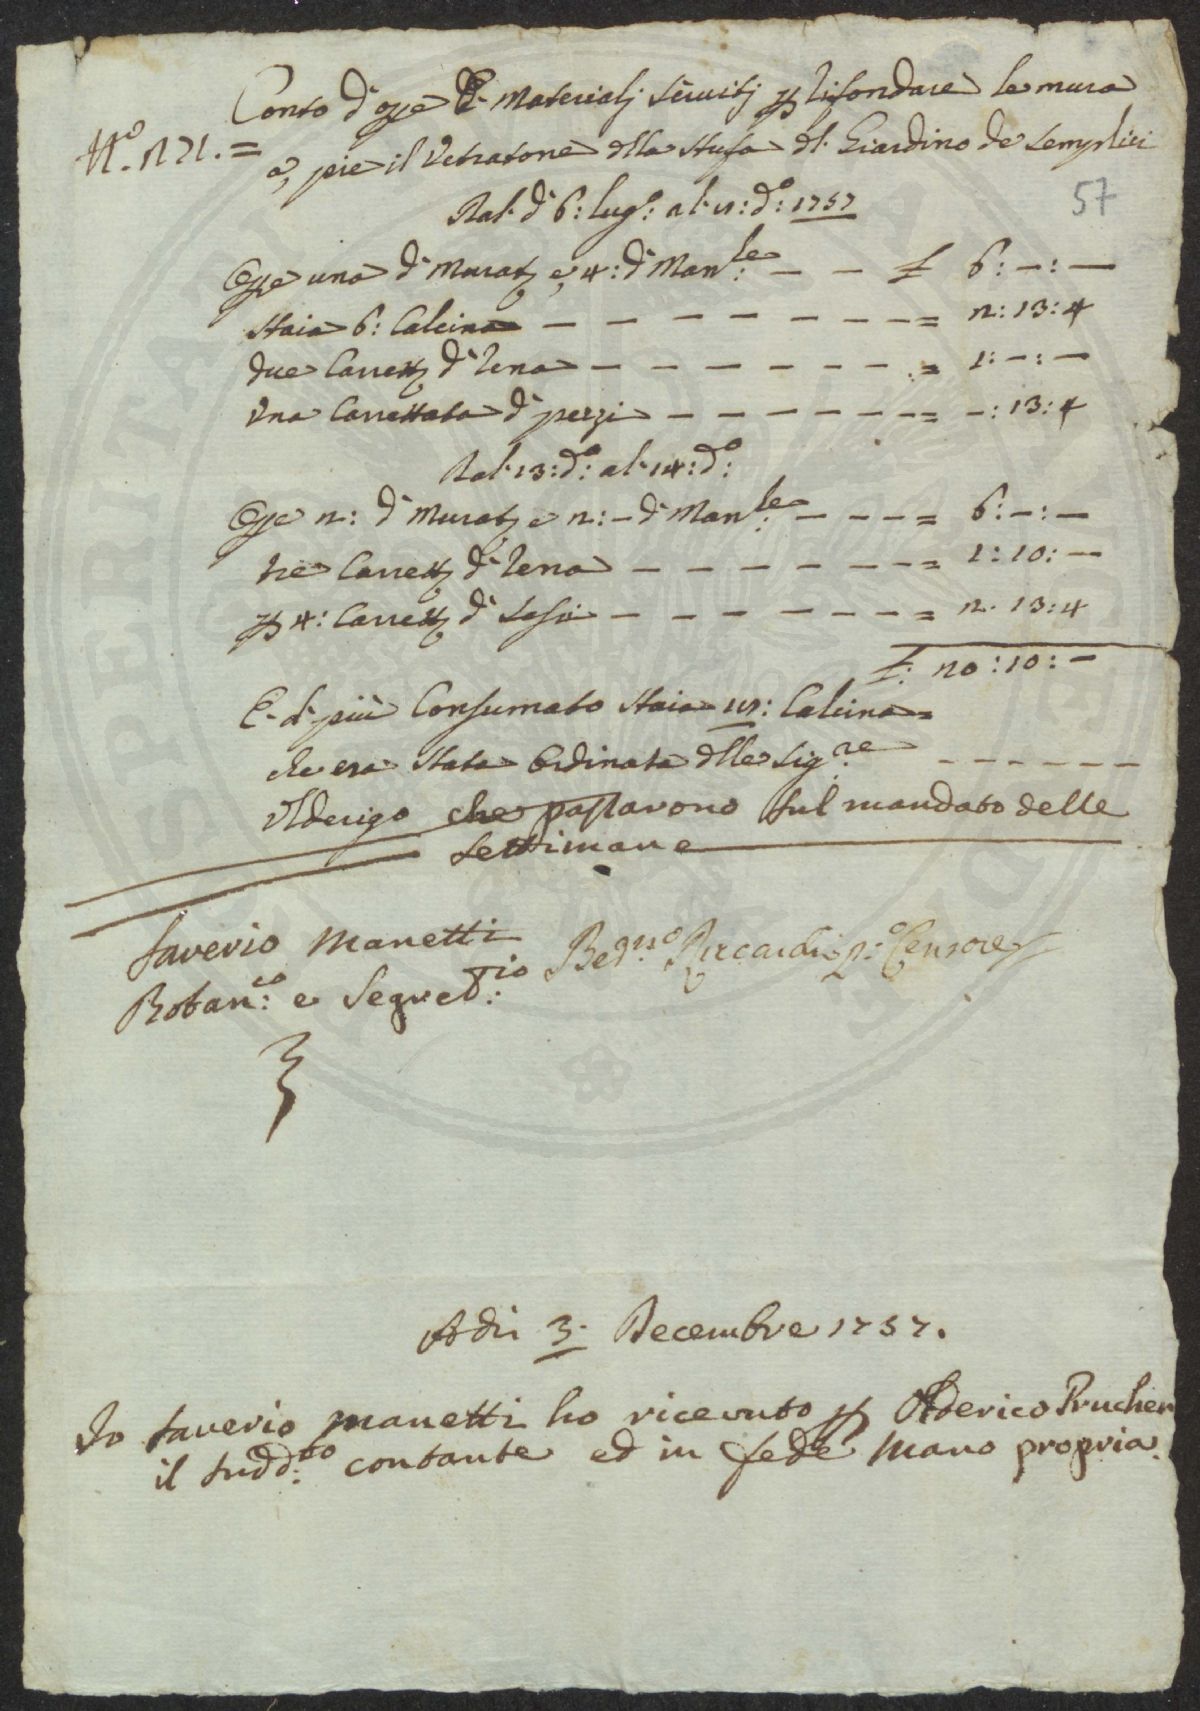 Conto d'opre E Materiali serviti p rifondare le mura
N.o 121. =
a, pie il Vetratone della stufa del Giardino de semplici
57
Dal dì 6: lug.o: al 12: d.o: 1757
Opre una di Murat.e e, 4: di Man.le: — — £ 6: — : —
staia 6: Calcina — — — — — — — = 2: 13: 4
due Carrett.e di rena — — — — — — — = 1: — : —
una Carrettata di pezzi — — — — — — = — : 13: 4
Dal 13: d.o: al 14: d.o:
Opre 2: di Murat.e e 2: — di Man.le: — — — = 6: — : —
tre Carrett.e di rena — — — — — — — = 1: 10: —
p 4: Carrett.e di sassi — — — — — — — = 2: 13: 4
£: 20: 10: —
E di più Consumato staia 12: Calcina
che era stata Ordinata dlle Sig.re — — — — — —
Olderigo che passarono sul mandato delle
settimane
Saverio Manetti
Botan.co: e Segret.rio:
Bern.o: Riccardi p.o: Censore
Adì 3. Decembre 1757.
Io Saverio Manetti ho ricevuto p Olderico Prucher
il sudd.to: contante ed in fede mano propria.